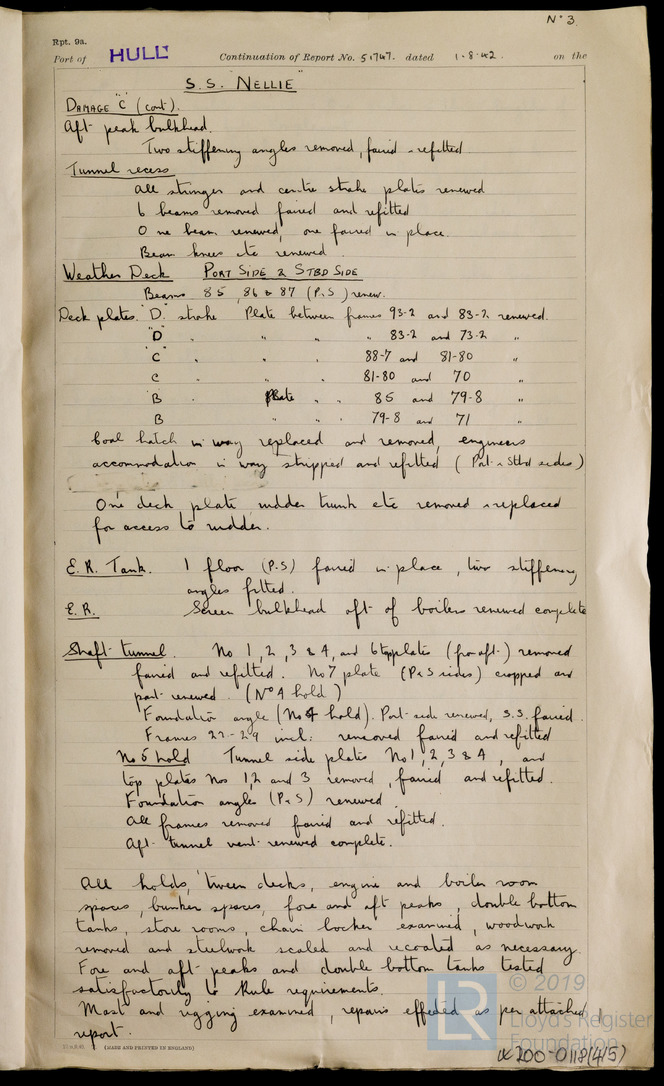 No 3.
Rpt. 9a.
Port of HULL Continuation of Report No. 51747. dated 1-8-42. on the
S.S. "NELLIE"
DAMAGE "C" (cont).
Aft peak bulkhead.
Two stiffening angles removed, faired & refitted
Tunnel recess
All stringer and centre strake plates renewed
6 beams removed faired and refitted
One beam renewed, one faired in place.
Beam knees etc renewed.
Weather Deck PORT SIDE & STBD SIDE
Beams 85, 86 & 87 (P.S) renew.
Deck plates. "D" strake Plate between frames 93-2 and 83-2 renewed.
"D" " " " " 83-2 and 73-2 "
"C" " " " 88-7 and 81-80 "
C " " " 81-80 and 70 "
B " Plate " " 85 and 79-8 "
B " " " 79-8 and 71 "
Coal hatch in way replaced and removed, engineers
accommodation in way stripped and refitted (Port & Stbd sides)
One deck plate, rudder trunk etc removed & replaced
for access to rudder.
E.R. Tank. 1 floor (P.S) faired in place, two stiffening
angles fitted.
E.R. Screen bulkhead aft of boilers renewed complete
Shaft tunnel. No 1, 2, 3 & 4, and 6 top plates (from aft) removed
faired and refitted. No 7 plate (P & S sides) cropped and
part renewed. (No 4 hold)
Foundation angle (No 4 hold). Port side renewed, S.S. faired.
Frames 22-29 incl: removed faired and refitted
No 5 hold Tunnel side plates No 1, 2, 3 & 4, and
top plates Nos 1, 2 and 3 removed, faired and refitted.
Foundation angles (P & S) renewed.
All frames removed faired and refitted.
Aft tunnel vent renewed complete.
All holds, 'tween decks, engine and boiler room
spaces, bunker spaces, fore and aft peaks, double bottom
tanks, store rooms, chain locker examined, woodwork
removed and steelwork scaled and recoated as necessary.
Fore and aft peaks and double bottom tanks tested
satisfactorily to Rule requirements.
Mast and rigging examined, repairs effected as per attached
report.
(MADE AND PRINTED IN ENGLAND)
LR © 2019
Lloyd's Register
Foundation
W200-0118(4/5)